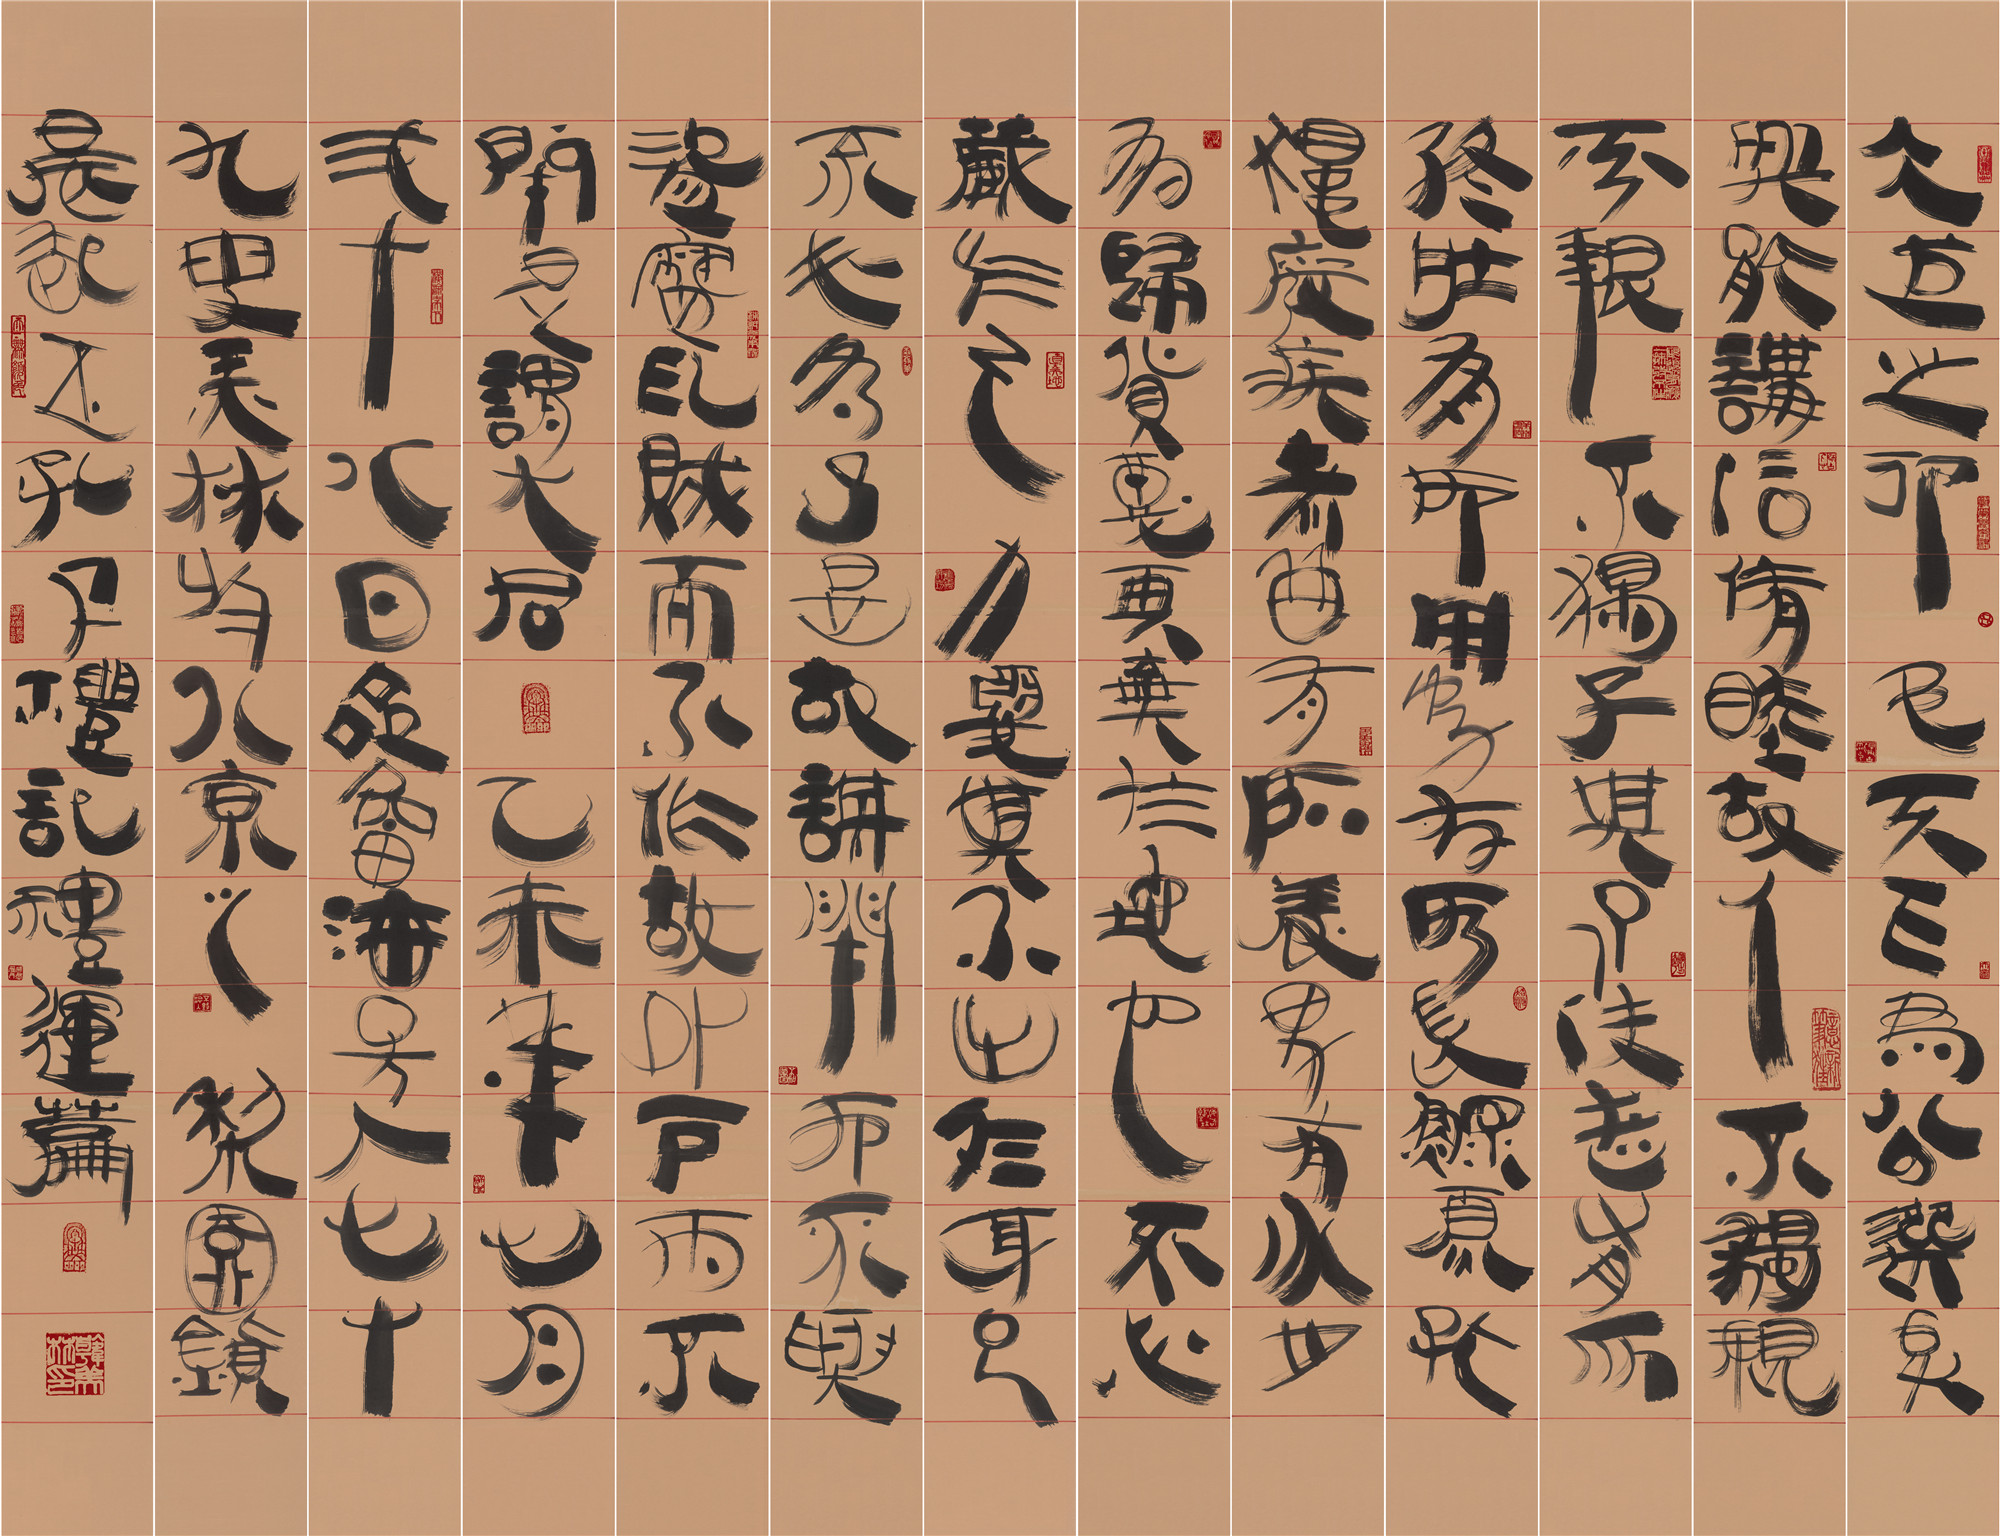 大道之行也天下為公選賢
與能講信脩睦故人不獨親
其親不獨子其子使老有所
終壯有所用幼有所長鰥寡孤
獨廢疾者皆有所養男有分女
有歸貨惡其棄於地也不必
藏於己力惡其不出於身也
不必為己是故謀閉而不興
盜竊亂賊而不作故外戶而不
閉是謂大同 乙未年七月
弍十八日人七十
九叟美林於北京之梨園鎮
孔子禮記禮運篇